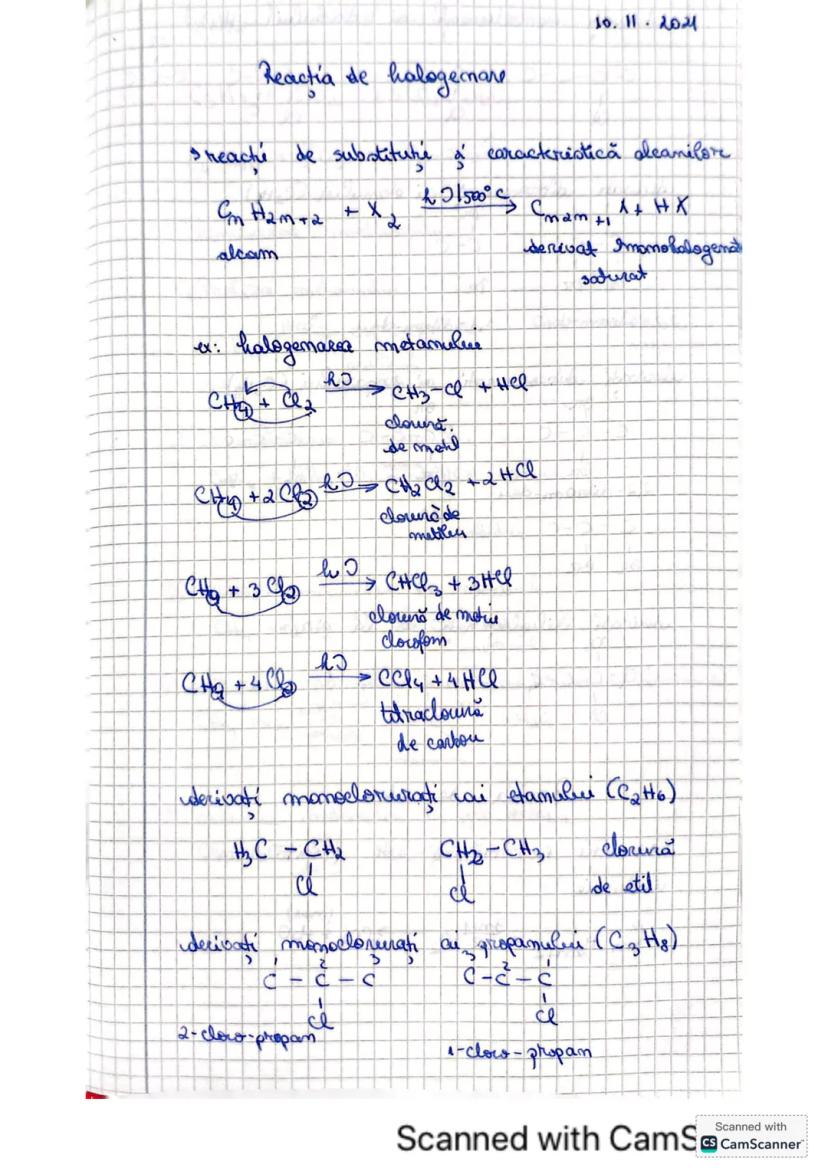 10. 11. 2021
Reacția de halogenare
→ reacție de substituție și caracteristică alcanilor
CnH2n+2 + X2 hν/500°C → Cn2n+1 X + HX
alcan derivat monohalogenat
saturat
ex: halogenarea metanului
CH4 + Cl2 hν → CH3-Cl + HCl
clorură
de metil
CH4 + 2Cl2 hν → CH2Cl2 + 2HCl
clorură de
metilen
CH4 + 3Cl2 hν → CHCl3 + 3HCl
clorură de metin
clorofom
CH4 + 4Cl2 hν → CCl4 + 4HCl
tetraclorură
de carbon
derivați monoclorurați ai etanului (C2H6)
H3C - CH2 CH2-CH3 clorură
Cl Cl de etil
derivați monoclorurați ai propanului (C3H8)
1 2 3 3 2 1
C - C - C C-C-C
Cl Cl
2-cloro-propan
1-cloro-propan
Scanned with CamS
Scanned with
CS CamScanner